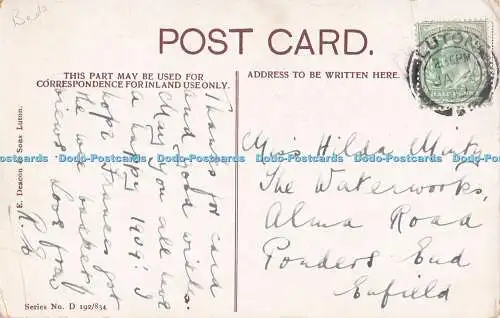 Beds
POST CARD.
THIS PART MAY BE USED FOR
CORRESPONDENCE FOR INLAND USE ONLY.
ADDRESS TO BE WRITTEN HERE.
LUTON
Thanks for card
and good wishes.
May you all have
a happy 1907! I
hope Frances got
the
views. Love from
Miss Hilda Minty
The Waterworks,
Alma Road
Ponders End
Enfield
E. Deacon & Sons Luton.
Series No. D 192/834
Dodo Postcards Dodo Postcards Dodo Postcards Dodo Postcards Dodo Postcards